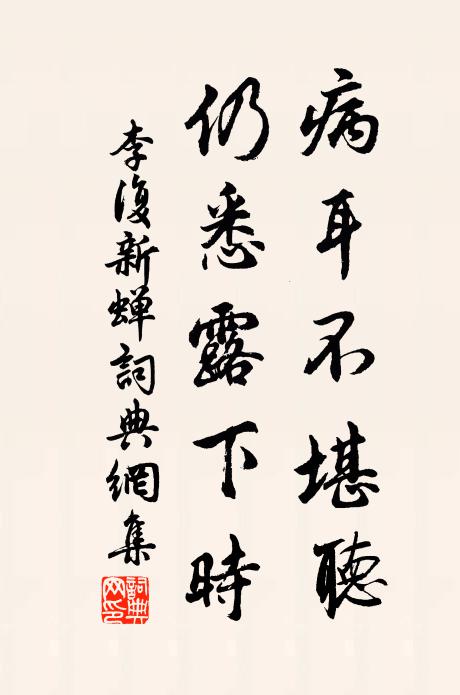 病耳不堪聽
仍悉露下時
李復新蟬詞典網集
詞典網印